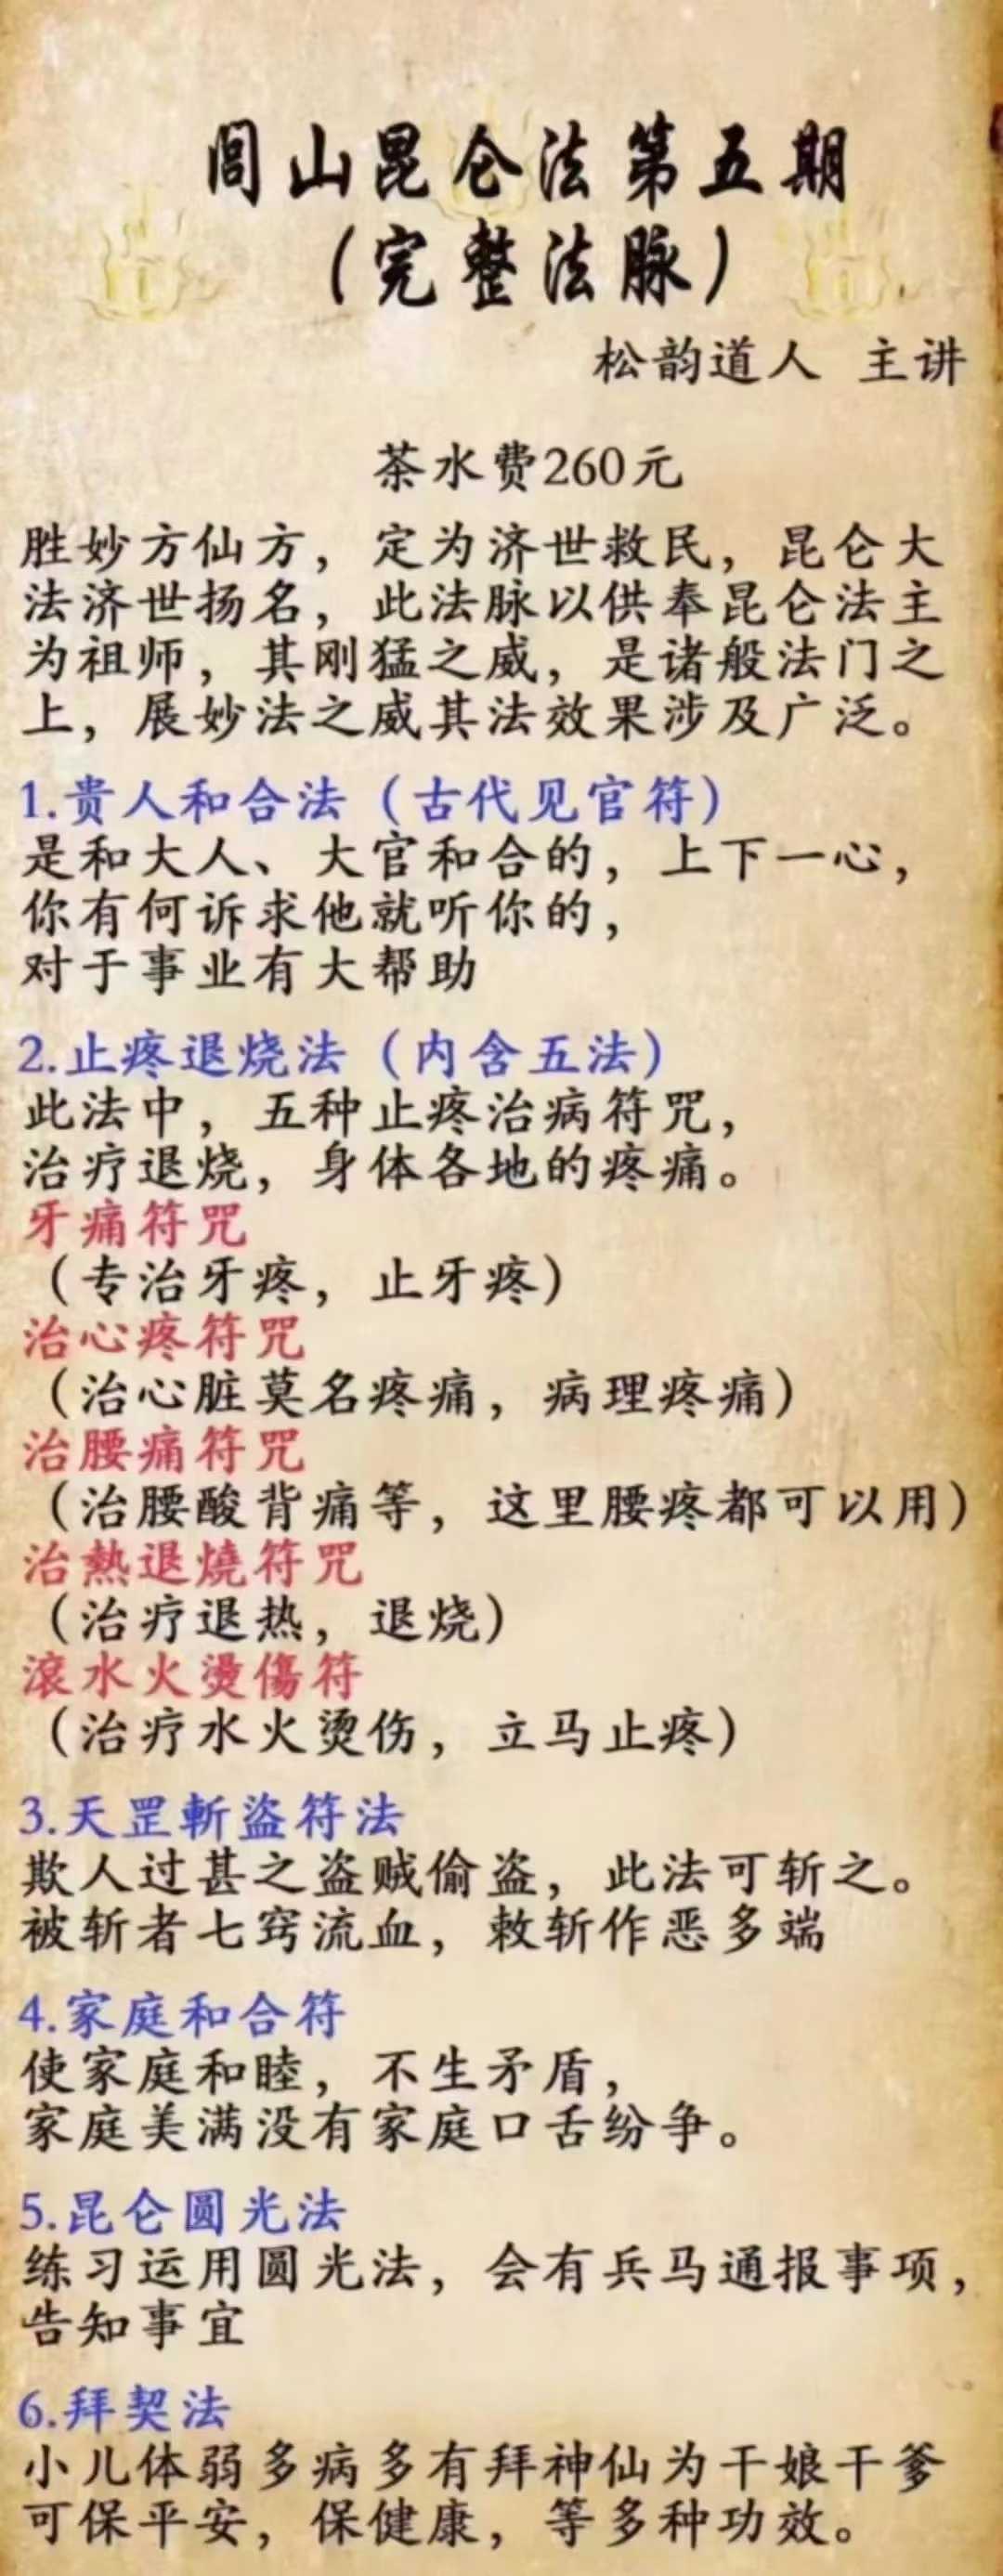 闾山昆仑法第五期
（完整法脉）
松韵道人 主讲
茶水费260元
胜妙方仙方，定为济世救民，昆仑大
法济世扬名，此法脉以供奉昆仑法主
为祖师，其刚猛之威，是诸般法门之
上，展妙法之威其法效果涉及广泛。
1.贵人和合法（古代见官符）
是和大人、大官和合的，上下一心，
你有何诉求他就听你的，
对于事业有大帮助
2.止疼退烧法（内含五法）
此法中，五种止疼治病符咒，
治疗退烧，身体各地的疼痛。
牙痛符咒
（专治牙疼，止牙疼）
治心疼符咒
（治心脏莫名疼痛，病理疼痛）
治腰痛符咒
（治腰酸背痛等，这里腰疼都可以用）
治熱退燒符咒
（治疗退热，退烧）
滾水火燙傷符
（治疗水火烫伤，立马止疼）
3.天罡斬盜符法
欺人过甚之盗贼偷盗，此法可斩之。
被斩者七窍流血，敕斩作恶多端
4.家庭和合符
使家庭和睦，不生矛盾，
家庭美满没有家庭口舌纷争。
5.昆仑圆光法
练习运用圆光法，会有兵马通报事项，
告知事宜
6.拜契法
小儿体弱多病多有拜神仙为干娘干爹
可保平安，保健康，等多种功效。